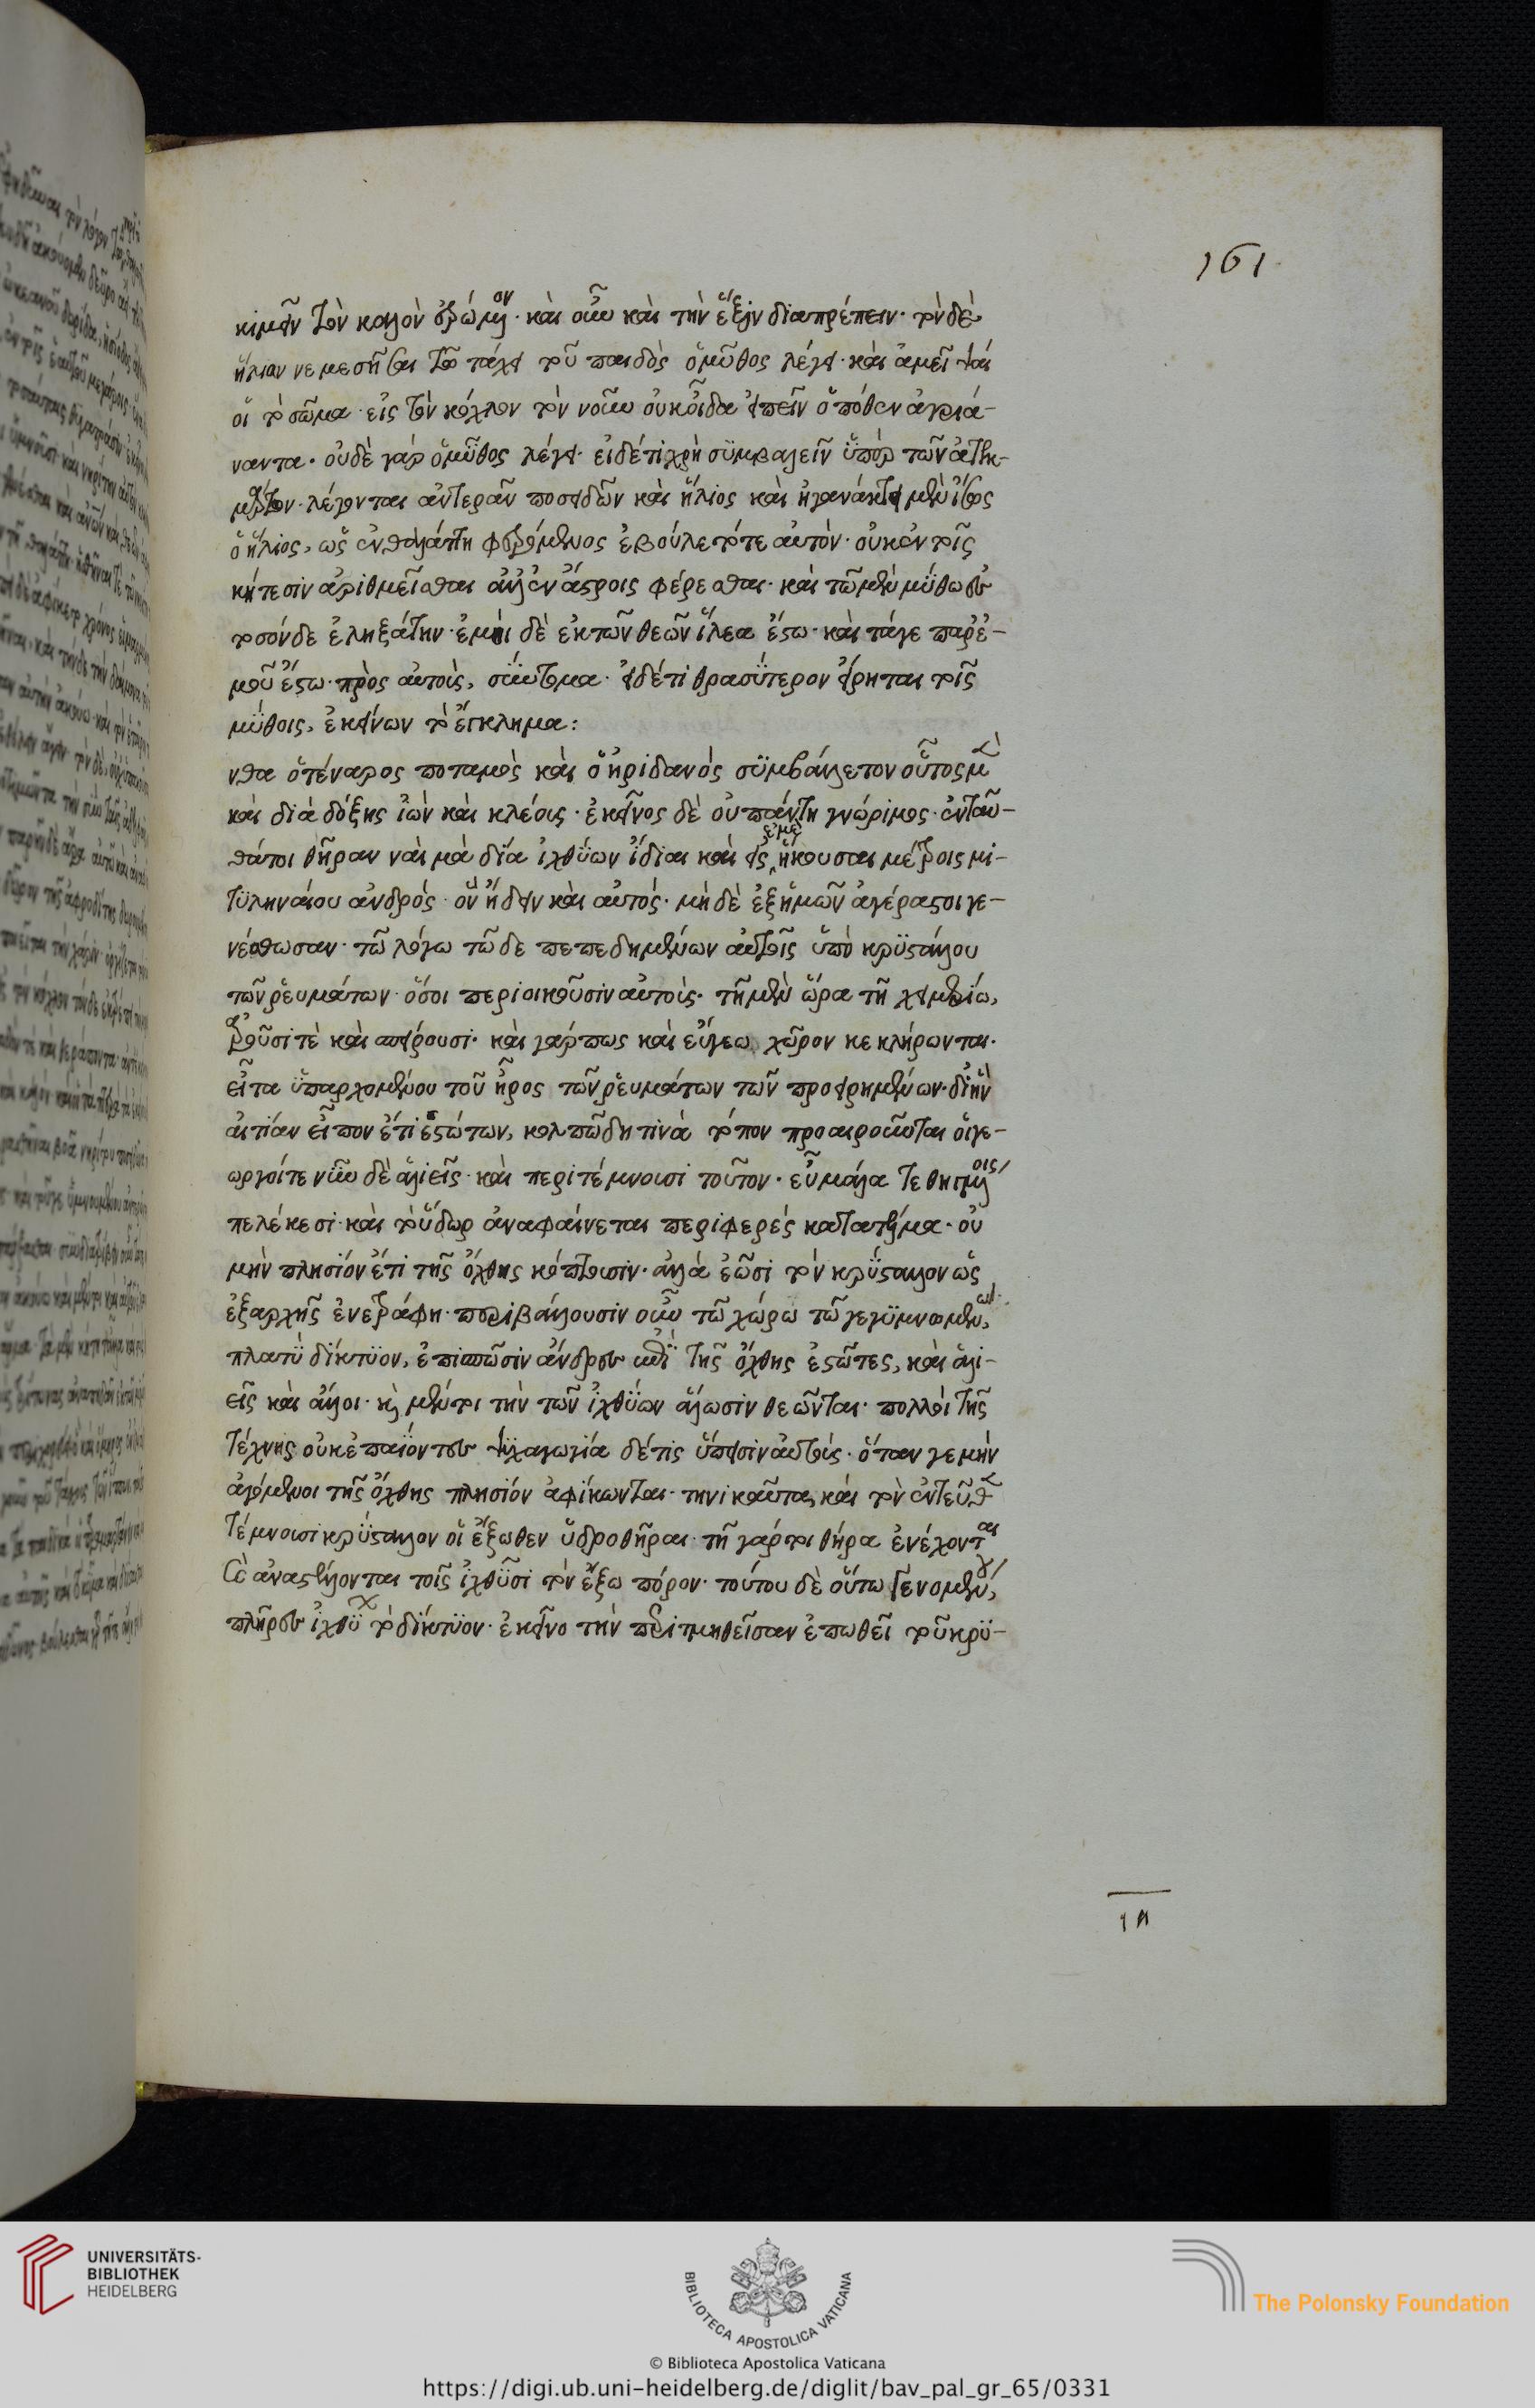 161
κιμεῖν τὸν καλὸν ἐρώμενον· καὶ οὖν καὶ τὴν ἕξιν διαπρέπειν· τὸν δὲ
ἥλιον νεμεσῆσαι τῷ τάχει τοῦ παιδὸς ὁ μῦθος λέγει· καὶ ἀμεῖψαί
οἱ τὸ σῶμα εἰς τὸν κόχλον τὸν νῦν οὐκ οἶδα εἰπεῖν ὁπόθεν ἀγριά-
ναντα· οὐδὲ γὰρ ὁ μῦθος λέγει· εἰ δέ τι χρὴ συμβαλεῖν ὑπὲρ τῶν ἀτεκ-
μάρτων· λέγονται ἀντερᾶν ποσειδῶν καὶ ἥλιος καὶ ἠγανάκτει μὲν ἴσως
ὁ ἥλιος, ὡς ἐν θαλάττῃ φερόμενος ἐβούλετό τε αὐτὸν· οὐκ ἐν τοῖς
κήτεσιν ἀριθμεῖσθαι ἀλλ' ἐν ἄστροις φέρεσθαι· καὶ τὼ μὲν μύθω ἐς
τοσόνδε ἐληξάτην· ἐμοὶ δὲ ἐκ τῶν θεῶν ἵλεα ἔστω· καὶ τά γε παρ' ἐ-
μοῦ ἔστω πρὸς αὐτοὺς, εὔστομα· εἰ δέ τι θρασύτερον εἴρηται τοῖς
μύθοις, ἐκείνων τὸ ἔγκλημα:
νθα ὁ τέναρος ποταμὸς καὶ ὁ ἠριδανὸς συμβάλλετον οὗτος μὲν
καὶ διὰ δόξης ἰὼν καὶ κλέους· ἐκεῖνος δὲ οὐ πάντῃ γνώριμος· ἐνταῦ-
θά τοι θῆραι ναὶ μὰ δία ἰχθύων ἴδιαι καὶ εἰς ἐμὲ ἥκουσαι μέτροις μι-
τυληναίου ἀνδρὸς· ὃν ᾔδειν καὶ αὐτός· μὴ δὲ ἐξ ἡμῶν ἀγέραστοι γε-
νέσθωσαν· τῷ λόγῳ τῷδε πεπεδημένων αὐτοῖς ὑπὸ κρυστάλλου
τῶν ῥευμάτων· ὅσοι περιοικοῦσιν αὐτοὺς· τῇ μὲν ὥρᾳ τῇ χειμερίῳ,
ἀροῦσί τε καὶ σπείρουσι· καὶ γάρ πως καὶ εὔγεω χῶρον κεκλήρωνται·
εἶτα ὑπαρχομένου τοῦ ἦρος τῶν ῥευμάτων τῶν προειρημένων· δι' ἣν
αἰτίαν εἶπον ἔτι ἑστώτων, κολπώδη τινὰ τόπον προαιροῦνται οἱ γε-
ωργοί τε νῦν δὲ ἁλιεῖς· καὶ περιτέμνουσι τοῦτον· εὖ μάλα τεθηγμένοις
πελέκεσι· καὶ τὸ ὕδωρ ἀναφαίνεται περιφερὲς κατὰ σχῆμα· οὐ
μὴν πλησίον ἔτι τῆς ὄχθης κόπτουσιν· ἀλλὰ ἐῶσι τὸν κρύσταλλον ὡς
ἐξ ἀρχῆς ἐνετράφη· περιβάλλουσιν οὖν τῷ χώρῳ τῷ γεγυμνωμένῳ,
πλατὺ δίκτυον, ἐπισπῶσιν ἄνδρες ἐπὶ τῆς ὄχθης ἑστῶτες, καὶ ἁλι-
εῖς καὶ ἄλλοι· καὶ μέντοι τὴν τῶν ἰχθύων ἅλωσιν θεῶνται· πολλοὶ τῆς
τέχνης οὐκ ἐπαΐοντες ψυχαγωγία δέ τις ὕπεισιν αὐτοὺς· ὅταν γε μὴν
ἀγόμενοι τῆς ὄχθης πλησίον ἀφίκωνται· τηνικαῦτα, καὶ τὸν ἐντεῦθεν
τέμνουσι κρύσταλλον οἱ ἔξωθεν ὑδροθῆραι· τῇ γάρ τοι θήρᾳ ἐνέχονται
ἀναστέλλονται τοῖς ἰχθῦσι τὸν ἔξω πόρον· τούτου δὲ οὕτω γενομένου,
πλῆρες ἰχθύων τὸ δίκτυον· ἐκεῖνο τὴν περιτμηθεῖσαν ἐπωθεῖ τοῦ κρυ-
UNIVERSITÄTS-
BIBLIOTHEK
HEIDELBERG
BIBLIOTECA APOSTOLICA VATICANA
© Biblioteca Apostolica Vaticana
The Polonsky Foundation
https://digi.ub.uni-heidelberg.de/diglit/bav_pal_gr_65/0331